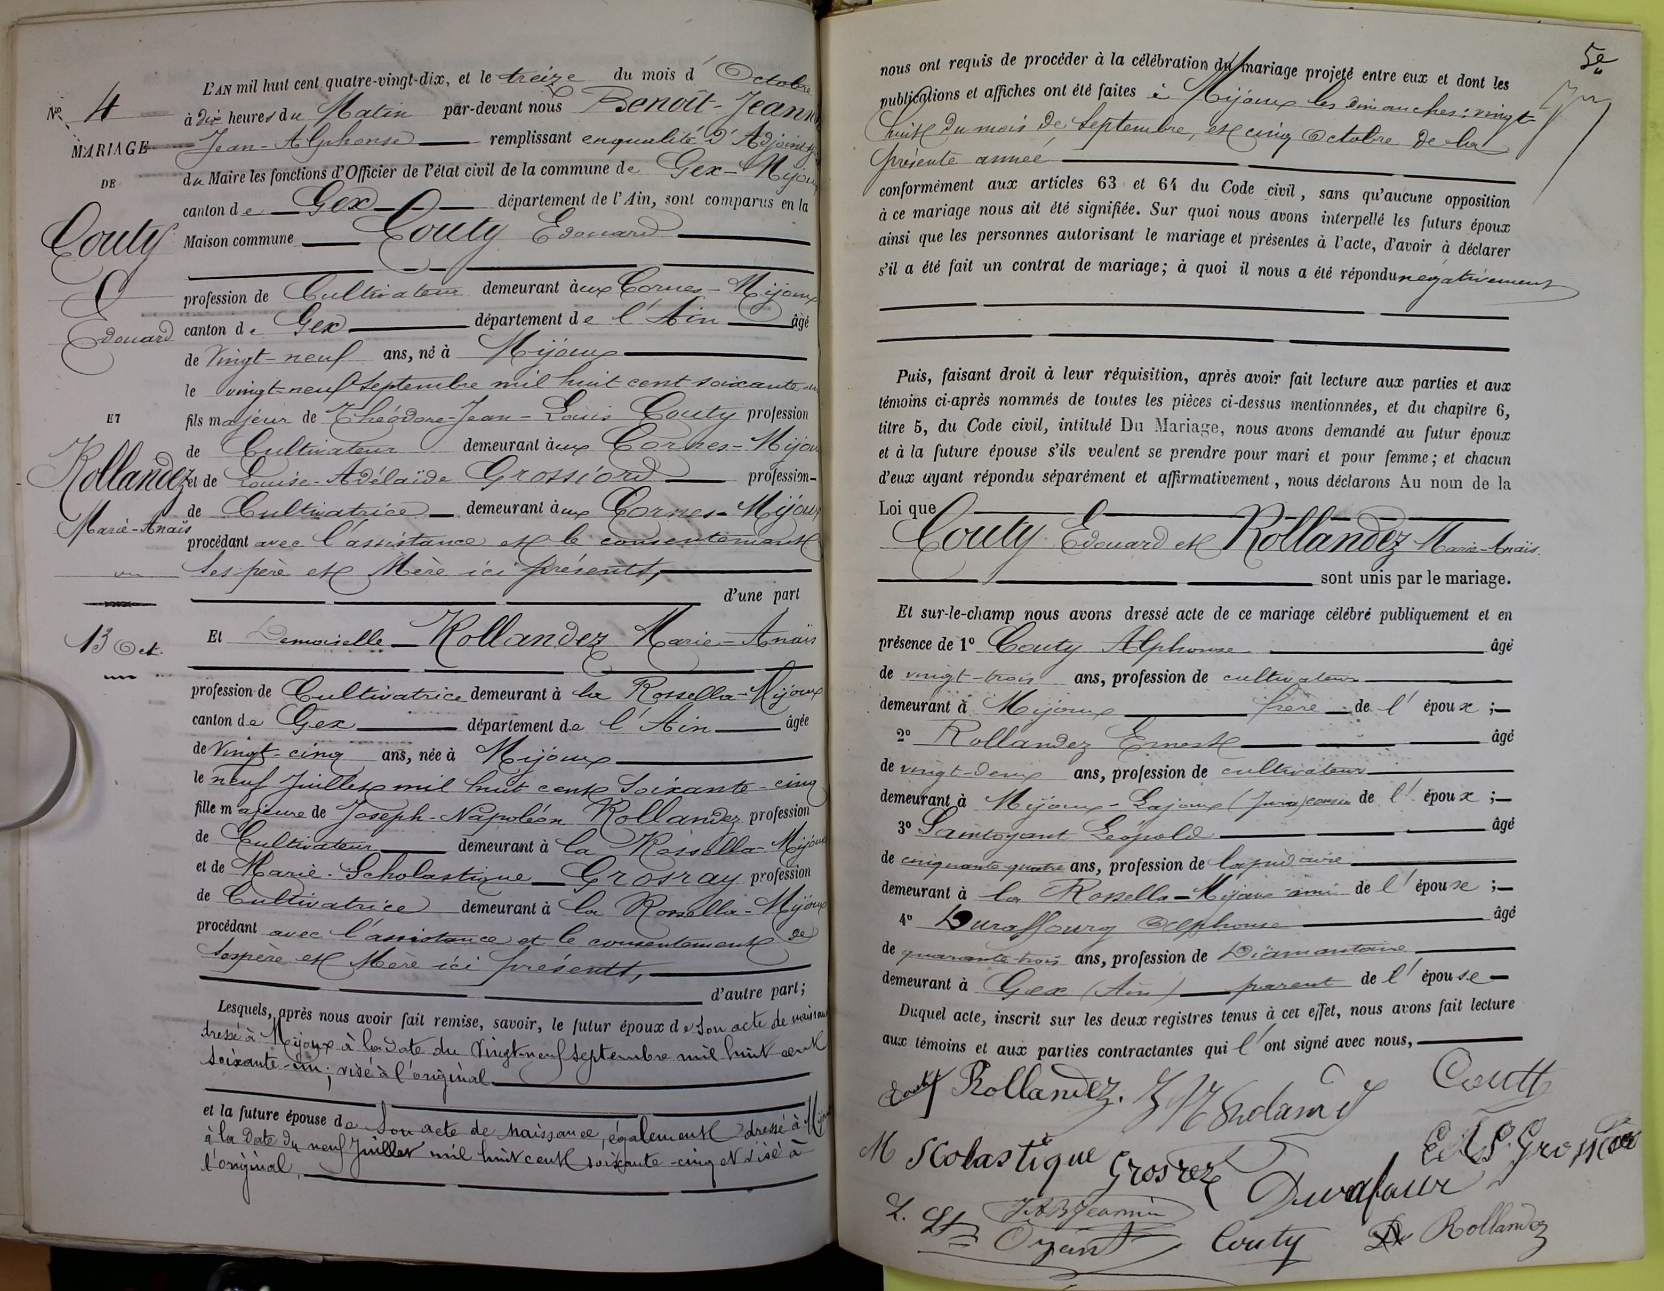 L'AN mil huit cent quatre-vingt-dix, et le treize du mois d'Octobre
à dix heures du Matin par-devant nous Benoît-Jeannin
Jean-Alphonse remplissant en qualité d'Adjoint
du Maire les fonctions d'Officier de l'état civil de la commune de Gex-Mijoux
canton de Gex département de l'Ain, sont comparus en la
Maison commune Couty Edouard
profession de Cultivateur demeurant aux Cornes-Mijoux
canton de Gex département de l'Ain âgé
de Vingt-neuf ans, né à Mijoux
le vingt-neuf septembre mil huit cent soixante-un
fils majeur de Théodore-Jean-Louis Couty profession
de Cultivateur demeurant aux Cornes-Mijoux
et de Louise-Adélaïde Grossiord profession
de Cultivatrice demeurant aux Cornes-Mijoux
procédant avec l'assistance et le consentement
ses père et Mère ici présents,
d'une part
Et Demoiselle Rollandez Marie-Anaïs
profession de Cultivatrice demeurant à la Rossella-Mijoux
canton de Gex département de l'Ain âgée
de Vingt-cinq ans, née à Mijoux
le neuf Juillet mil huit cent Soixante-cinq
fille majeure de Joseph-Napoléon Rollandez profession
de Cultivateur demeurant à la Rossella-Mijoux
et de Marie-Scholastique Grosray profession
de Cultivatrice demeurant à la Rossella-Mijoux
procédant avec l'assistance et le consentement de
ses père et Mère ici présents,
d'autre part;
Lesquels, après nous avoir fait remise, savoir, le futur époux de son acte de naissance
dressé à Mijoux à la date du Vingt-neuf septembre mil huit cent
soixante-un; visé à l'original
et la future épouse de son acte de naissance, également dressé à Mijoux
à la date du neuf Juillet mil huit cent soixante-cinq et visé à
l'original,
No 4
MARIAGE
DE
Couty
Edouard
ET
Rollandez
Marie-Anaïs
13 Oct.
5e
nous ont requis de procéder à la célébration du mariage projeté entre eux et dont les
publications et affiches ont été faites à Mijoux les dimanches: vingt-
huit du mois de Septembre, et cinq Octobre de la
présente année
conformément aux articles 63 et 64 du Code civil, sans qu'aucune opposition
à ce mariage nous ait été signifiée. Sur quoi nous avons interpellé les futurs époux
ainsi que les personnes autorisant le mariage et présentes à l'acte, d'avoir à déclarer
s'il a été fait un contrat de mariage; à quoi il nous a été répondu négativement
Puis, faisant droit à leur réquisition, après avoir fait lecture aux parties et aux
témoins ci-après nommés de toutes les pièces ci-dessus mentionnées, et du chapitre 6,
titre 5, du Code civil, intitulé Du Mariage, nous avons demandé au futur époux
et à la future épouse s'ils veulent se prendre pour mari et pour femme; et chacun
d'eux ayant répondu séparément et affirmativement, nous déclarons Au nom de la
Loi que
Couty Edouard et Rollandez Marie-Anaïs.
sont unis par le mariage.
Et sur-le-champ nous avons dressé acte de ce mariage célébré publiquement et en
présence de 1° Couty Alphonse âgé
de vingt-trois ans, profession de cultivateur
demeurant à Mijoux frère de l'époux;
2° Rollandez Ernest âgé
de vingt-deux ans, profession de cultivateur
demeurant à Mijoux-Lajoux (Jura) cousin de l'époux;
3° Saintoyant Léopold âgé
de cinquante quatre ans, profession de lapidaire
demeurant à la Rossella-Mijoux ami de l'épouse;
4° Duraffourg Alphonse âgé
de quarante-trois ans, profession de Diamantaire
demeurant à Gex (Ain) parent de l'épouse
Duquel acte, inscrit sur les deux registres tenus à cet effet, nous avons fait lecture
aux témoins et aux parties contractantes qui l'ont signé avec nous,
Rollandez. Coutt
M Scolastique Grosrez
Couty Rollandez